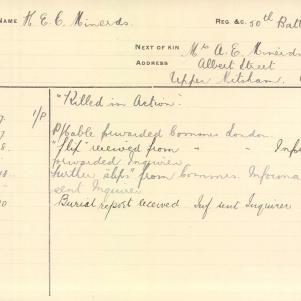 NAME H. E. C. Minerds. REG. &C. 50th Batt
NEXT OF KIN Mrs A. E. Minerds
ADDRESS Albert Street
Upper Mitcham,
"Killed in Action".
7. 1/P
7 P/Cable forwarded Commes London.
8. "Slip" received from " " Inf
forwarded Inquirer
18. Further "slips" from Commes. Informa
sent Inquirer
20 Burial report received Inf sent Inquirer